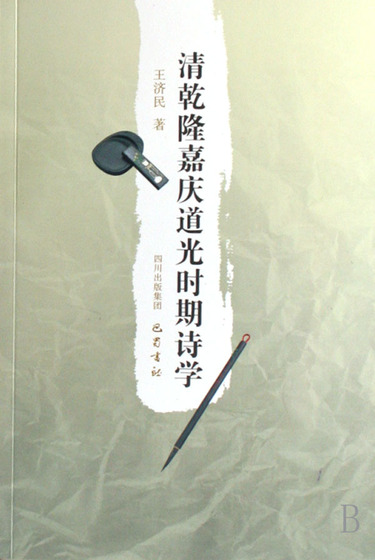 清乾隆嘉庆道光时期诗学
王济民 著
四川出版集团
巴蜀书社
B